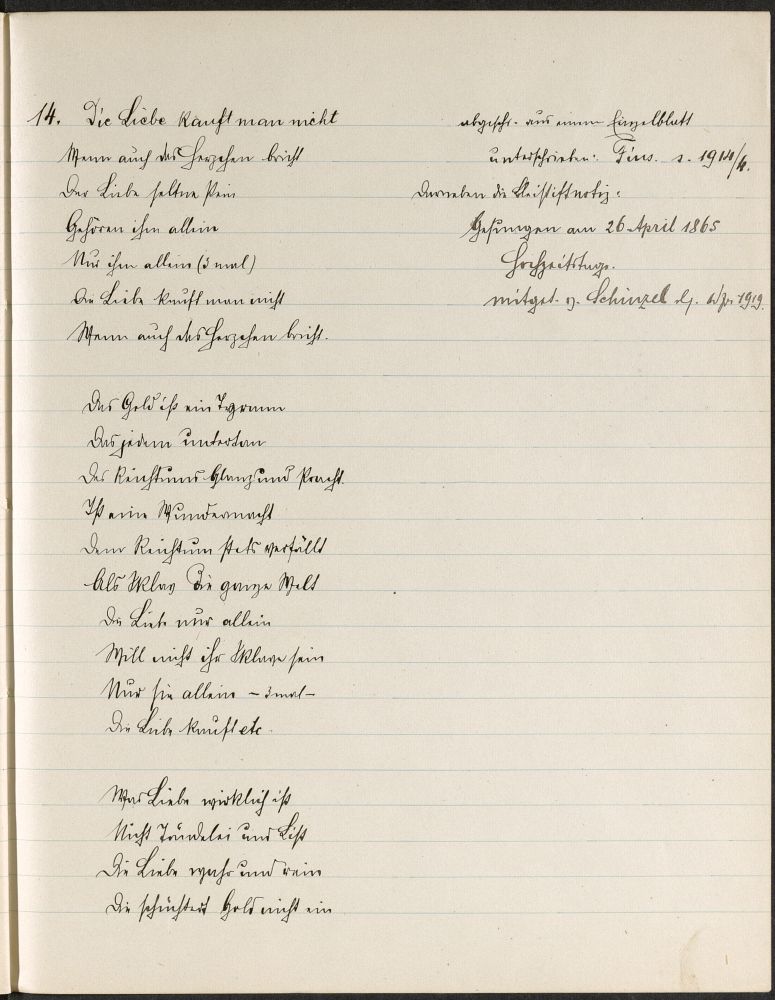 14. Die Liebe kauft man nicht
Wenn auch das Herzchen bricht
Der Liebe seltne Pein
Gehören ihm allein
Nur ihm allein (3 mal)
Die Liebe kauft man nicht
Wenn auch das Herzchen bricht.
abgeschr. aus einem Einzelblatt
unterschrieben:
Darneben die Bleistiftnotiz:
Gesungen am 26 April 1865
Hochzeitstage.
mitget. v. Schinzel 1919.
Das Gold ist ein Tyrann
Das jedem untertan
Des Reichtums Glanz und Pracht
Ist eine Wundermacht
Dem Reichtum stets verfällt
Als Sklav die ganze Welt
Die Liebe nur allein
Will nicht ihr Sklave sein
Nur sie allein – 3 mal –
Die Liebe kauft etc.
Was Liebe wirklich ist
Nicht Tändelei und List
Die Liebe wahr und rein
Die schüchtert Gold nicht ein